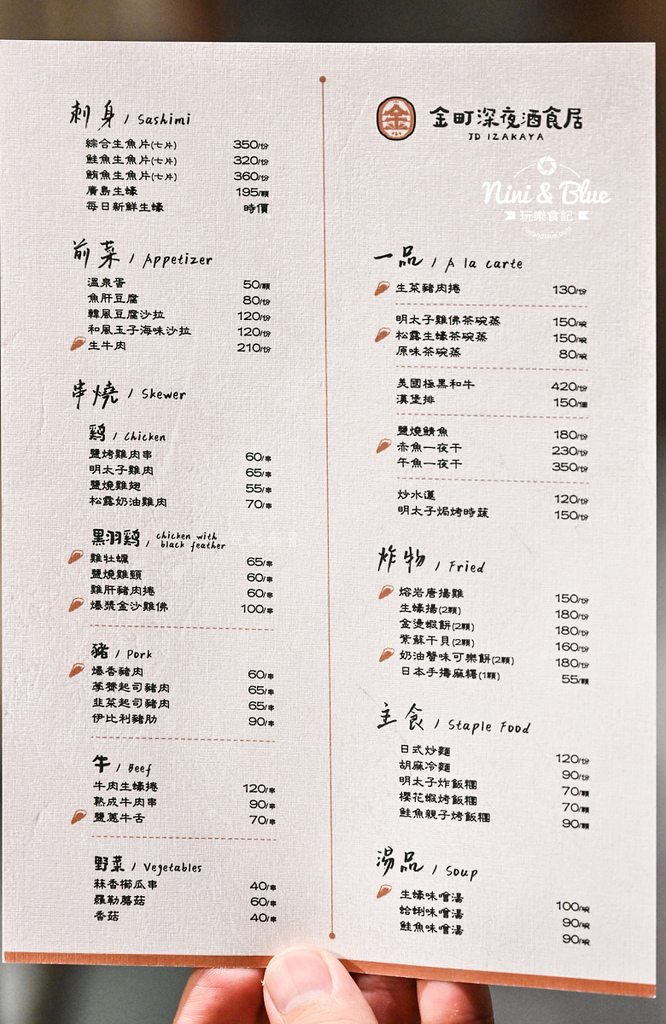 刺身 / Sashimi
綜合生魚片(七片) 350/份
鮭魚生魚片(七片) 320/份
鮪魚生魚片(七片) 360/份
廣島生蠔 195/顆
每日新鮮生蠔 時價
前菜 / Appetizer
溫泉蛋 50/顆
魚肝豆腐 80/份
韓風豆腐沙拉 120/份
和風玉子海味沙拉 120/份
生牛肉 210/份
串燒 / Skewer
鷄 / Chicken
鹽烤雞肉串 60/串
明太子雞肉 65/串
鹽燒雞翅 55/串
松露奶油雞肉 70/串
黑羽鷄 / chicken with black feather
雞牡蠣 65/串
鹽燒雞頸 60/串
雞肝豬肉捲 60/串
爆漿金沙雞佛 100/串
豬 / Pork
爆香豬肉 60/串
荖葉起司豬肉 65/串
韭菜起司豬肉 65/串
伊比利豬肋 90/串
牛 / Beef
牛肉生蠔捲 120/串
熟成牛肉串 90/串
鹽蔥牛舌 70/串
野菜 / Vegetables
蒜香櫛瓜串 40/串
羅勒磨菇 60/串
香菇 40/串
金 金町深夜酒食居
JD IZAKAYA
Nini & Blue
玩樂食記
一品 / A la carte
生菜豬肉捲 130/份
明太子雞佛茶碗蒸 150/碗
松露生蠔茶碗蒸 150/碗
原味茶碗蒸 80/碗
美國極黑和牛 420/份
漢堡排 150/個
鹽燒鯖魚 180/份
赤魚一夜干 230/份
午魚一夜干 350/份
炒水蓮 120/份
明太子焗烤時蔬 150/份
炸物 / Fried
熔岩唐揚雞 150/份
生蠔揚(2顆) 180/份
金燙蝦餅(2顆) 180/份
紫蘇干貝(2顆) 160/份
奶油蟹味可樂餅(2顆) 180/份
日本手擣麻糬(1顆) 55/顆
主食 / Staple Food
日式炒麵 120/份
胡麻冷麵 90/份
明太子炸飯糰 70/顆
櫻花蝦烤飯糰 70/顆
鮭魚親子烤飯糰 90/顆
湯品 / Soup
生蠔味噌湯 100/碗
蛤蜊味噌湯 90/碗
鮭魚味噌湯 90/碗